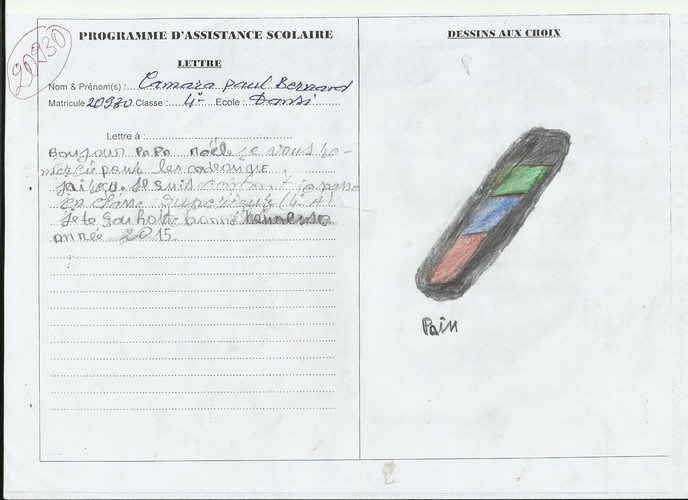 20930
PROGRAMME D'ASSISTANCE SCOLAIRE
LETTRE
Nom & Prénom(s) : Camara paul Bernard
Matricule 20930 Classe : 4e Ecole : Dansi
Lettre à :
Bonjour PaPa noël je vous re-
mercie pour les cadeaux que
j'ai reçu. Je suis passe
en classe Superieur (4e A).
Je te souhaite bonne heureuse
année 2015.
DESSINS AUX CHOIX
P
Pain